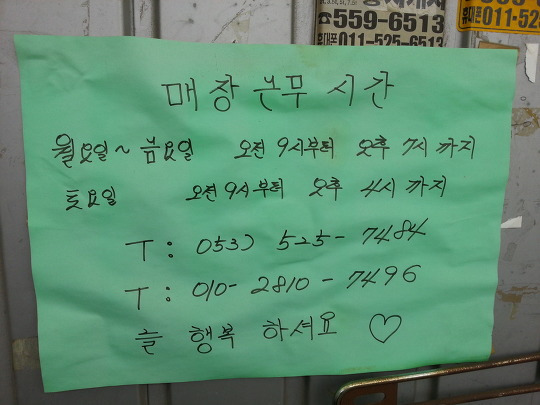 ☎559-6513
휴대폰011-525-6513
휴대폰011-525
매장 근무 시간
월요일~금요일 오전 9시부터 오후 7시 까지
토요일 오전 9시부터 오후 4시 까지
T: 053) 525-7484
T: 010-2810-7496
늘 행복 하셔요 ♡